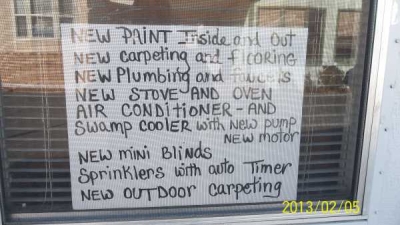 NEW PAINT Inside and Out
NEW carpeting and flooring
NEW Plumbing and faucets
NEW STOVE AND OVEN
AIR CONDITIONER-AND
Swamp cooler with New pump
NEW motor
NEW mini Blinds
Sprinklers with auto Timer
NEW OUTDOOR carpeting
2013/02/05